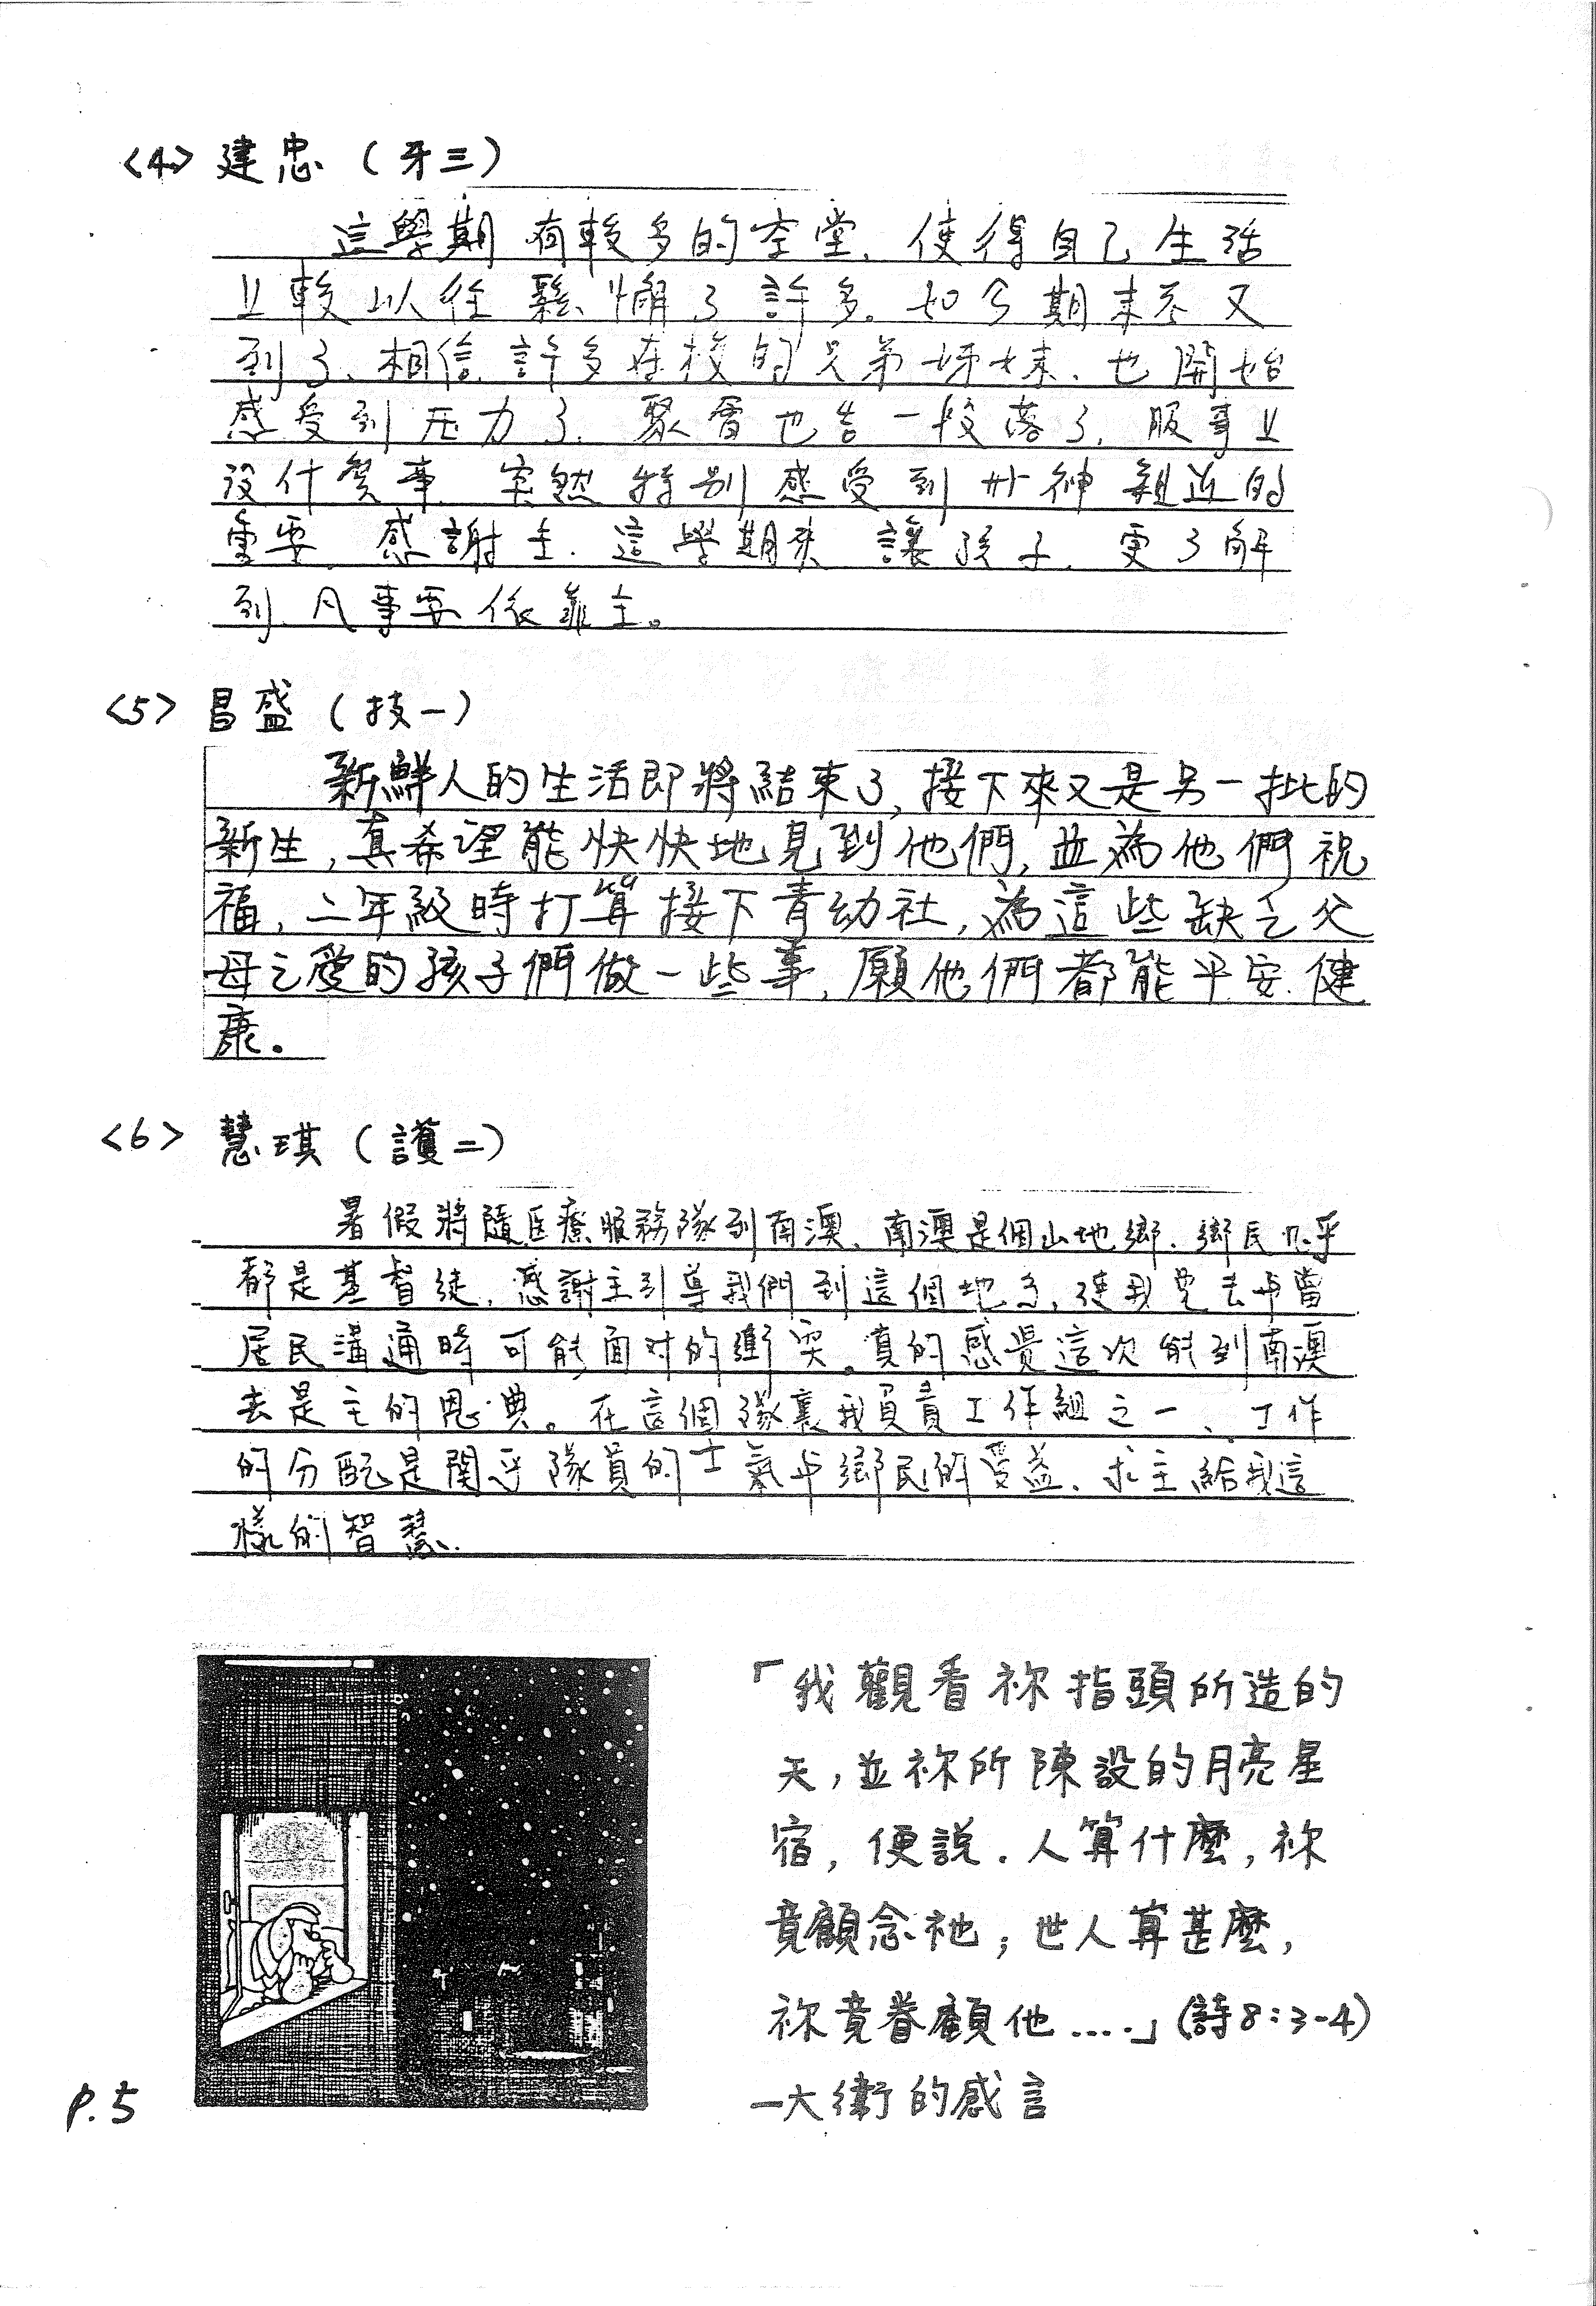 <4> 建忠 (牙三)
這學期有較多的空堂、使得自己生活
比較以往鬆懈了許多。如今期末考又
到了、相信許多在校的兄弟姊妹、也開始
感受到压力了、聚會也告一段落了、服事也
沒什麼事、突然特別感受到与神親近的
重要、感謝主、這學期來讓孩子、更了解
到凡事要依靠主。
<5> 昌盛 (技一)
新鮮人的生活即將結束了,接下來又是另一批的
新生,真希望能快快地見到他們,並為他們祝
福,二年級時打算接下青幼社,為這些缺乏父
母之愛的孩子們做一些事,願他們都能平安、健
康。
<6> 慧琪 (護二)
暑假將隨医療服務隊到南澳、南澳是個山地鄉、鄉民几乎
都是基督徒、感謝主引導我們到這個地方、使我免去与當
居民溝通時可能面对的衝突。真的感覺這次能到南澳
去是主的恩典。在這個隊裏我負責工作組之一、工作
的分配是関乎隊員的士氣与鄉民的受益、求主給我這
樣的智慧、
「我觀看祢指頭所造的
天,並祢所陳設的月亮星
宿,便說.人算什麼,祢
竟顧念祂;世人算甚麼,
祢竟眷顧他....」(詩8:3-4)
—大衛的感言
P.5